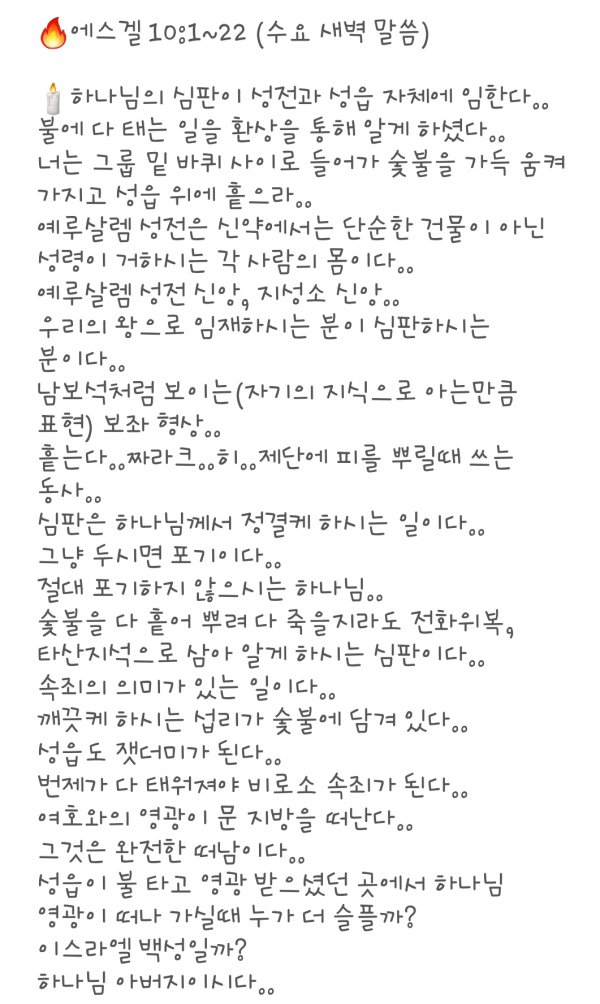 🔥에스겔 10:1~22 (수요 새벽 말씀)
🕯하나님의 심판이 성전과 성읍 자체에 임한다..
불에 다 태는 일을 환상을 통해 알게 하셨다..
너는 그룹 밑 바퀴 사이로 들어가 숯불을 가득 움켜
가지고 성읍 위에 흩으라..
예루살렘 성전은 신약에서는 단순한 건물이 아닌
성령이 거하시는 각 사람의 몸이다..
예루살렘 성전 신앙, 지성소 신앙..
우리의 왕으로 임재하시는 분이 심판하시는
분이다..
남보석처럼 보이는(자기의 지식으로 아는만큼
표현) 보좌 형상..
흩는다..짜라크..히..제단에 피를 뿌릴때 쓰는
동사..
심판은 하나님께서 정결케 하시는 일이다..
그냥 두시면 포기이다..
절대 포기하지 않으시는 하나님..
숯불을 다 흩어 뿌려 다 죽을지라도 전화위복,
타산지석으로 삼아 알게 하시는 심판이다..
속죄의 의미가 있는 일이다..
깨끗케 하시는 섭리가 숯불에 담겨 있다..
성읍도 잿더미가 된다..
번제가 다 태워져야 비로소 속죄가 된다..
여호와의 영광이 문 지방을 떠난다..
그것은 완전한 떠남이다..
성읍이 불 타고 영광 받으셨던 곳에서 하나님
영광이 떠나 가실때 누가 더 슬플까?
이스라엘 백성일까?
하나님 아버지이시다..